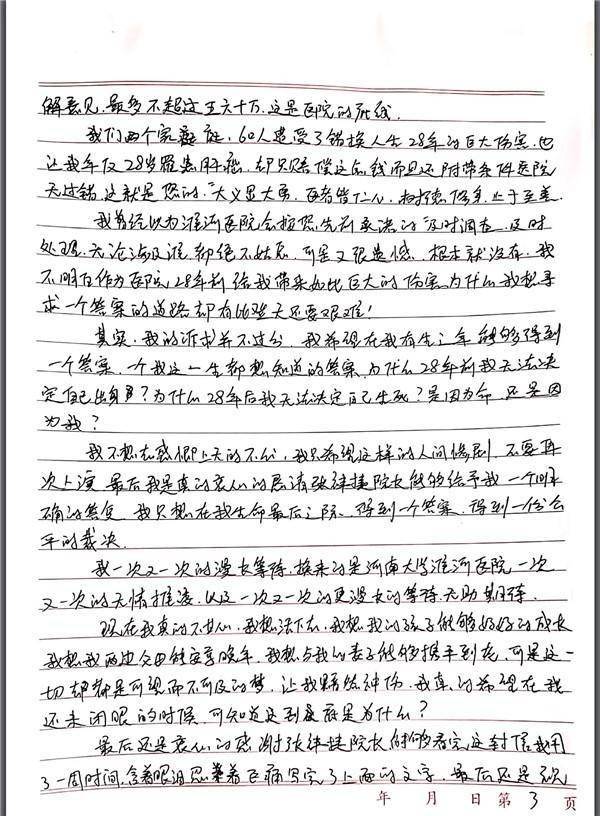 解意见，最多不超过五六十万，这是医院的底线。
我们两个家庭，60人遭受了错换人生28年的巨大伤害，也
让我年仅28岁罹患肝癌，却只赔偿这点钱而且还附带条件医院
无过错，这就是您的，"大义显大勇，医者皆仁心，
我曾经以为淮河医院会按您先前承诺的"及时调查，及时
处理，无论涉及谁都绝不姑息，可是又很遗憾，根本就没有，我
不明白作为医院，28年前给我带来如此巨大的伤害，为什么我想寻
求一个答案的道路却有比登天还要艰难！
其实，我的诉求并不过分，我希望在我有生之年能够得到
一个答案，一个我这一生都想知道的答案，为什么28年前我无法决
定自己出身？为什么28年后我无法决定自己生死？是因为命，还是因
为我？
我不想去感慨上天的不公，我只希望这样的人间惨剧，不要再
次上演，最后我是真的衷心的恳请张建捷院长能够给予我一个明
确的答复，我只想在我生命最后之际，得到一个答案，得到一份公
平的裁决。
我一次又一次的漫长等待，换来的是河南大学淮河医院一次
又一次的无情推诿，以及一次又一次的更漫长的等待，无助期待。
现在我真的不甘心，我想活下去，我想我的孩子能够好好的成长
我想我两边父母能安享晚年，我想与我的妻子能够携手到老，可是这一
切却都是可望而不可及的梦，让我黯然神伤，我真的希望在我
还未闭眼的时候，可知道这到底是为什么？
最后还是衷心的感谢张建捷院长能够看完这封信，我用
了一周时间，含着眼泪忍着巨痛写完了上面的文字，最后还是
年 月 日 第 3 页